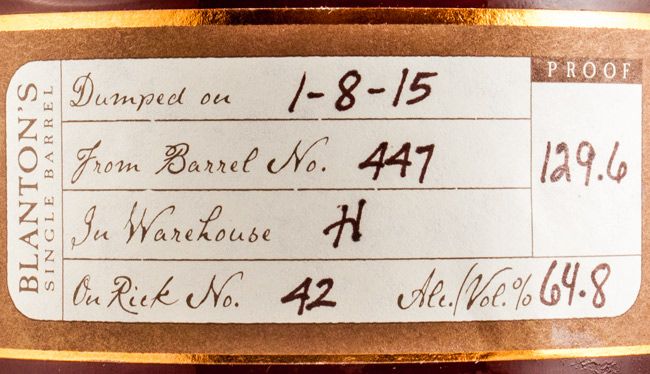 BLANTON'S
SINGLE BARREL
Dumped on 1-8-15
PROOF
From Barrel No. 447
129.6
In Warehouse H
On Rick No. 42 Alc./Vol.% 64.8